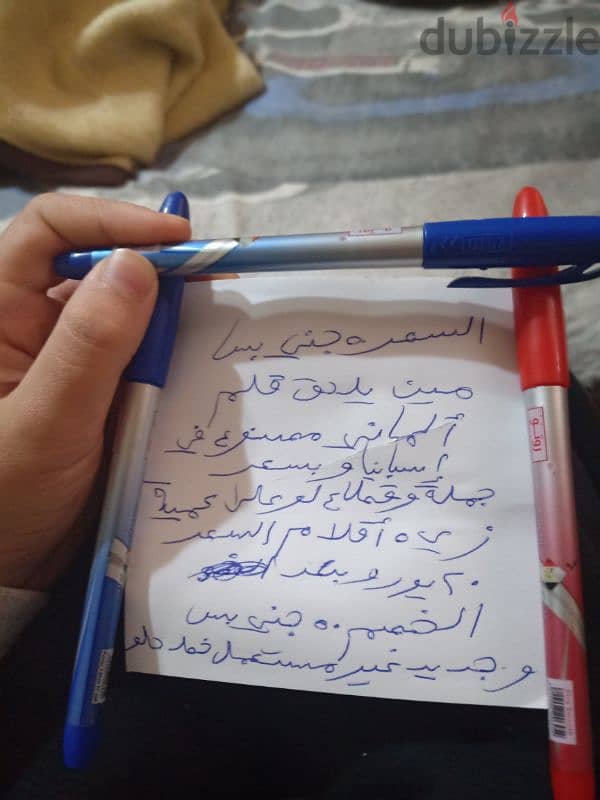 dubizzle
السعر ٥ جني بس
مين يلحق قلم
ألماني مصنوع في
إسبانيا وبسعر
جملة وقطاع لو عليا كمية
زي ٥ أقلام السعر
٢٠ يورو بعد
الخصم ٥٠ جني بس
و جديد غير مستعمل خط حلو